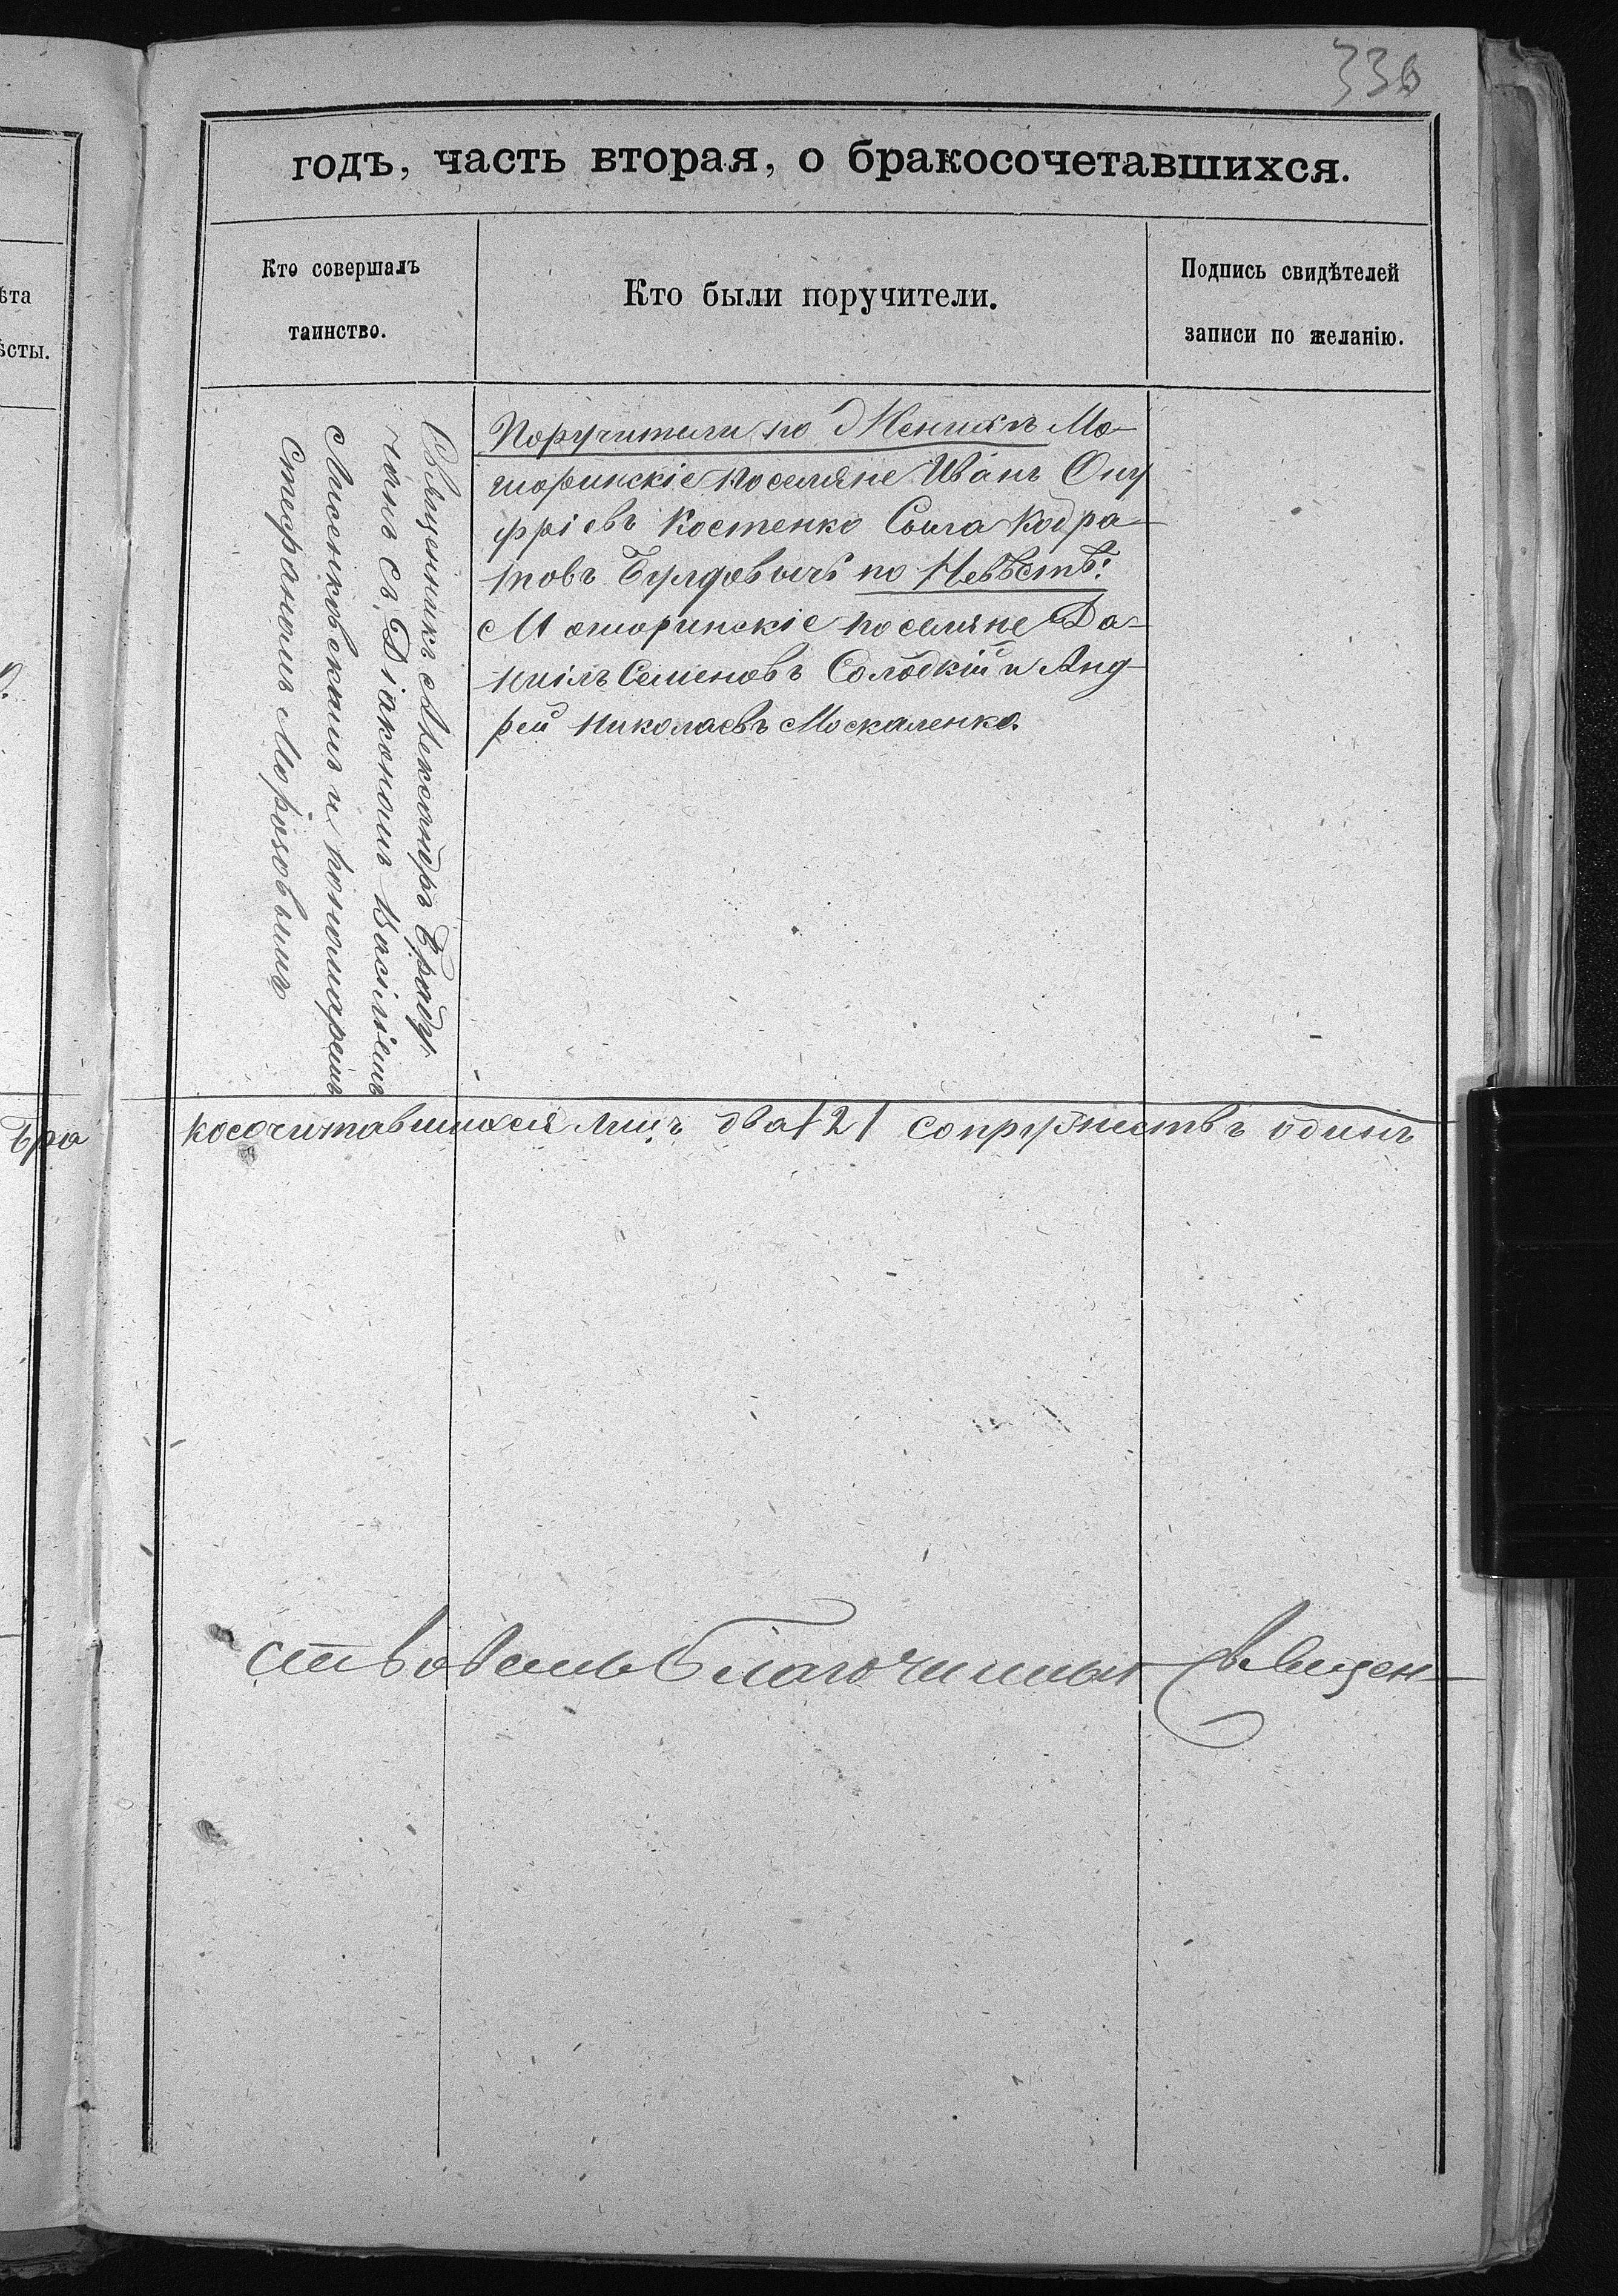 336
годъ, часть вторая, о бракосочетавшихся.
Кто совершалъ
таинство.
Кто были поручители.
Подпись свидѣтелей
записи по желанію.
ѣта
ѣсты.
Священникъ Александръ Браду
чанъ съ Діакономъ Василіемъ
Лисенковскимъ и пономаремъ
Стефаномъ Морозовымъ
Поручители по Женихѣ Мо-
торинскіе поселяне Иванъ Ону
фріевъ Костенко Сыла Кодра-
товъ по Невѣстѣ:
Моторинскіе поселяне Да-
ніилъ Семеновъ Солодкій и Анд-
рей Николаевъ Москаленко.
Бра
косочитавшихся лицъ два /2/ сопружествъ одинъ
ствовалъ Благочинный Священ-